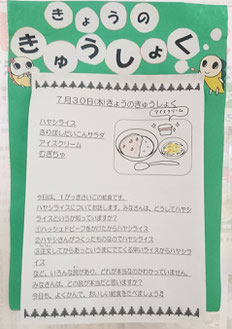 きょうの
きゅうしょく
7月30日(木)きょうのきゅうしょく
ハヤシライス
きりぼしだいこんサラダ
アイスクリーム
むぎちゃ
アイスクリーム
今日は、1がっきさいごの給食です。
ハヤシライスについてお話します。みなさんは、どうしてハヤシ
ライスというか知っていますか?
①ハッシュドビーフをかけたからハヤシライス
②ハヤシさんがつくったものなのでハヤシライス
③注文してからあっというまにでてくる早いライスからハヤシライ
ス
など、いろんな説があり、どれが本当なのかわかっていません。
みなさんは、どの説が本当だと思いますか?
今日も、よくかんで、おいしい給食をたべましょう♫